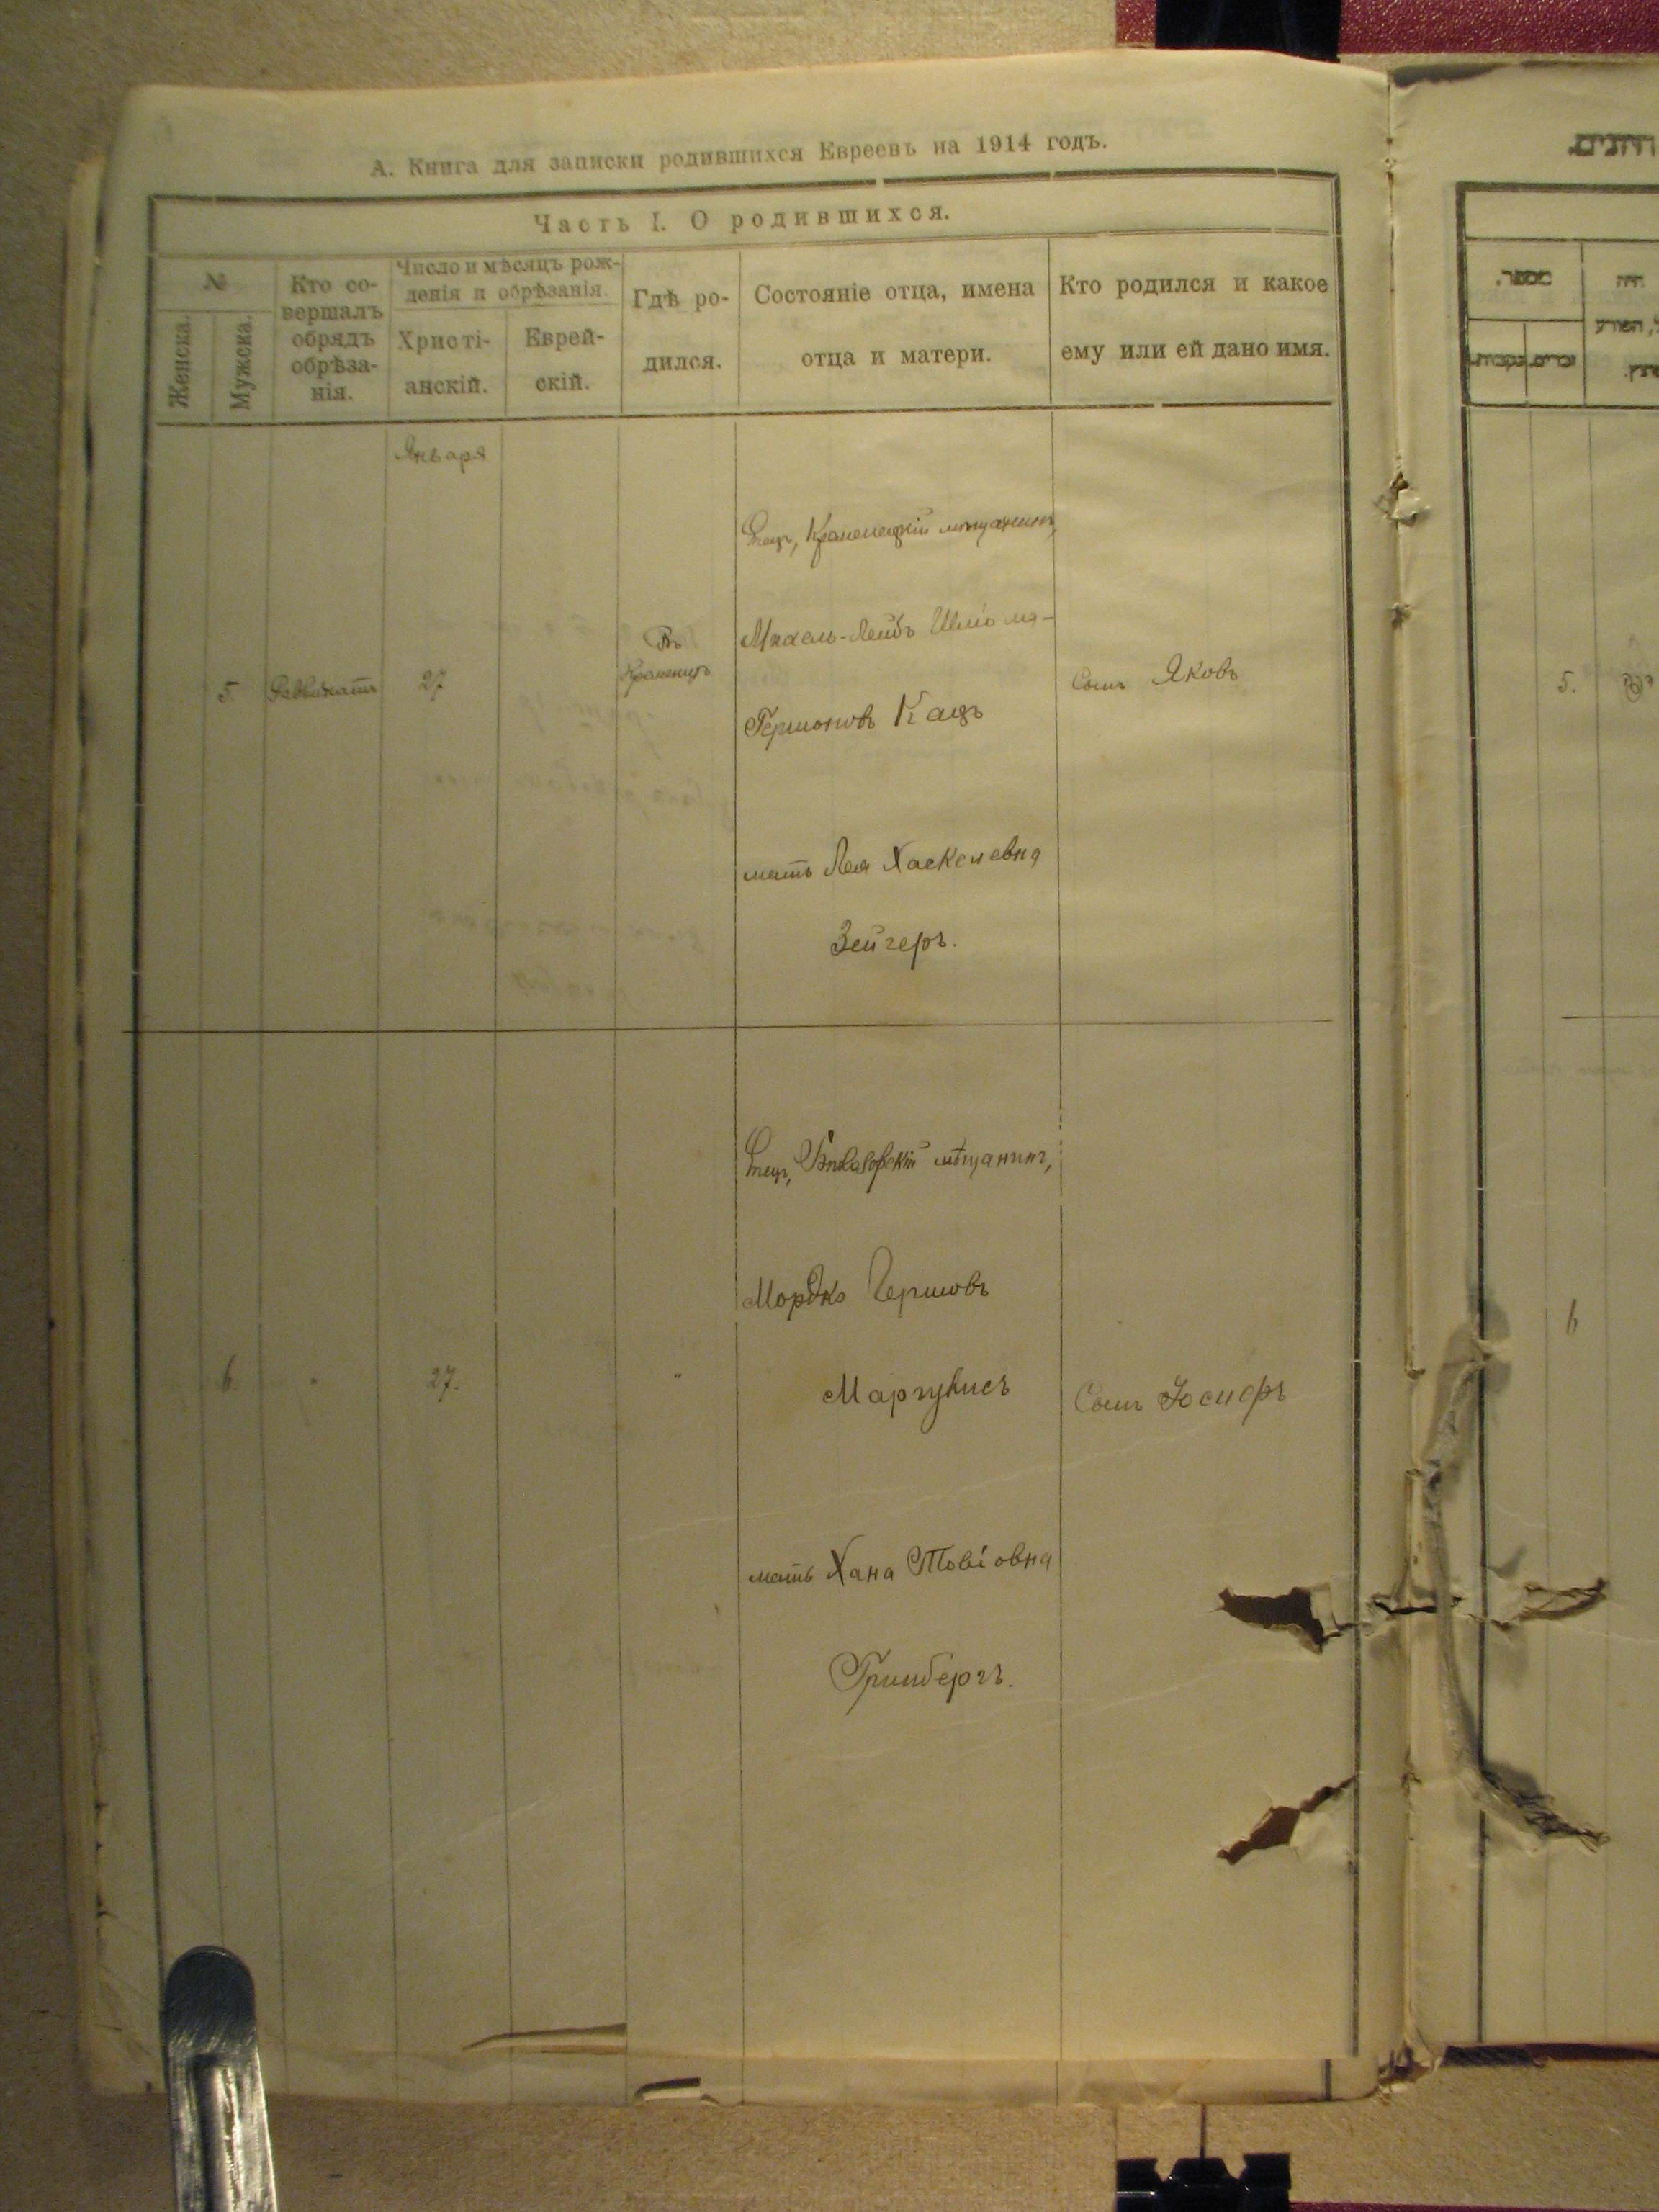 А. Книга для записки родившихся Евреевъ на 1914 годъ.
Часть I. О родившихся.
№
Женска.
Мужска.
Кто со-
вершалъ
обрядъ
обрѣза-
нія.
Число и мѣсяцъ рож-
денія и обрѣзанія.
Христі-
анскій.
Еврей-
скій.
Гдѣ ро-
дился.
Состояніе отца, имена
отца и матери.
Кто родился и какое
ему или ей дано имя.
Января
5.
27
Въ
Кременцѣ
Отецъ, Кременецкій мѣщанинъ,
Михель-Лейбъ Шліома-
Гершоновъ Кацъ
мать Лея Хаскелевна
Зейгеръ.
Сынъ Яковъ
6.
"
27.
"
Отецъ, мѣщанинъ,
Мордко Гершовъ
Маргулисъ
мать Хана Товіовна
Гринбергъ.
Сынъ Іосифъ
5.
6